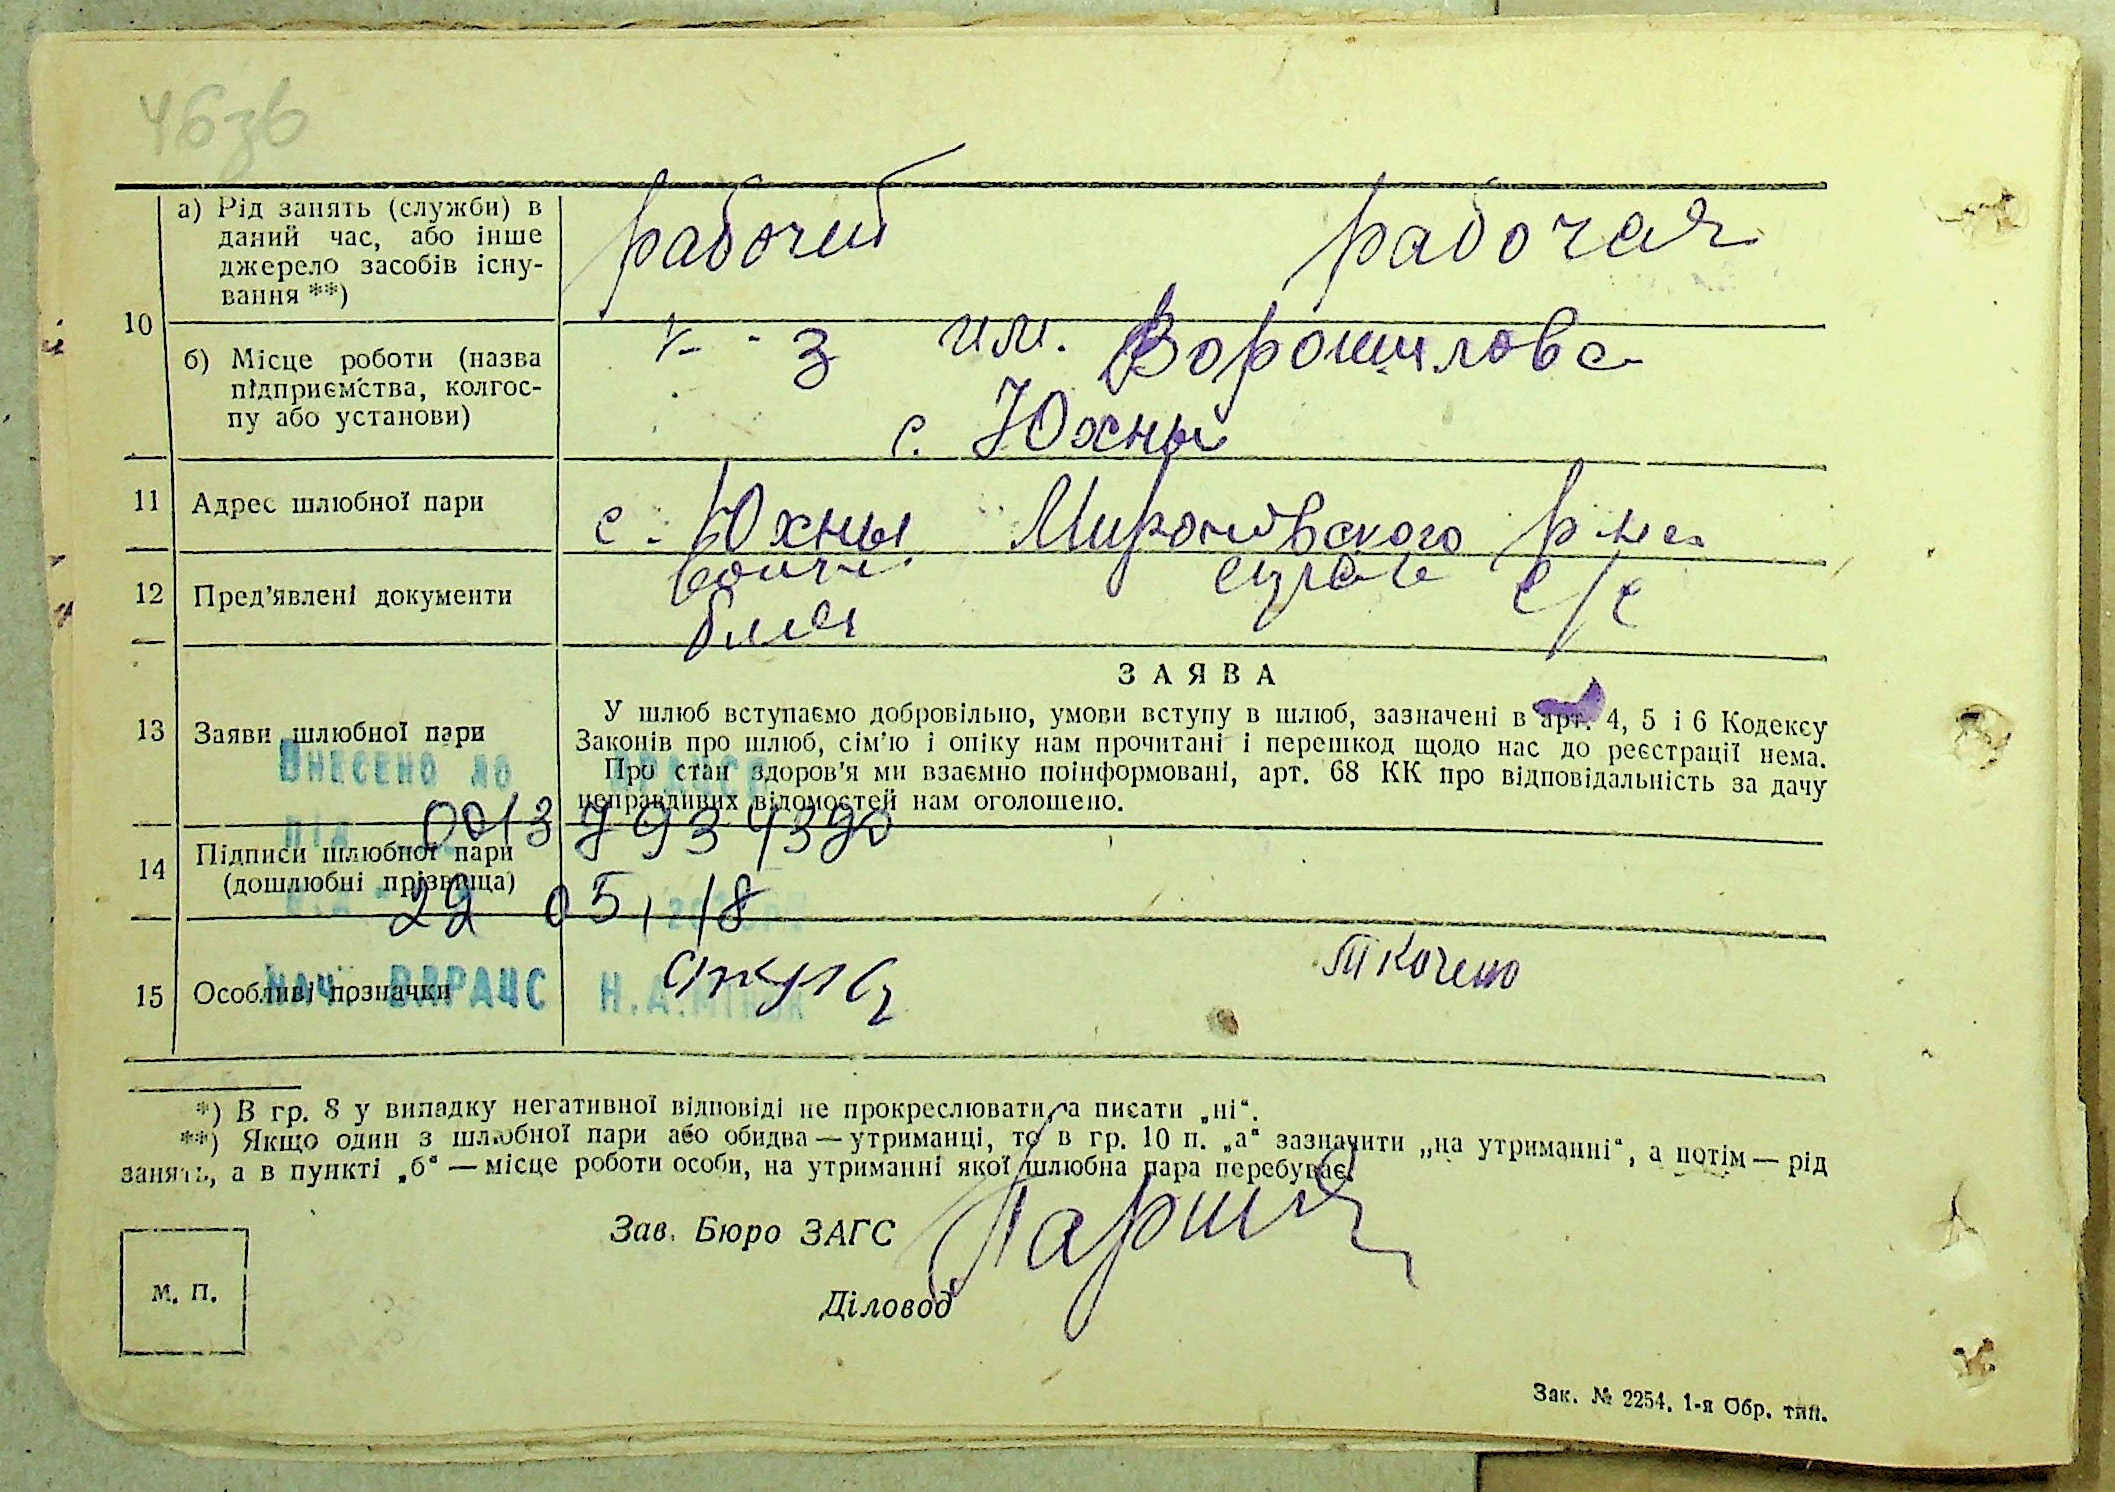 а) Рід занять (служби) в
даний час, або інше
джерело засобів існу-
вання **)
рабочий рабочая
10
б) Місце роботи (назва
підприємства, колгос-
пу або установи)
к-з им. Ворошилова
с. Юхны
11 Адрес шлюбної пари
с. Юхны Мироновского р-на
12 Пред'явлені документи
с/с
13 Заяви шлюбної пари
ЗАЯВА
У шлюб вступаємо добровільно, умови вступу в шлюб, зазначені в арт. 4, 5 і 6 Кодексу
Законів про шлюб, сім'ю і опіку нам прочитані і перешкод щодо нас до реєстрації нема.
Про стан здоров'я ми взаємно поінформовані, арт. 68 КК про відповідальність за дачу
неправдивих відомостей нам оголошено.
Внесено до ДРАЦСГ
від 00137934390
14 Підписи шлюбної пари
(дошлюбні прізвища)
29 05, 18
15 Особливі позначки
Нач. ВДРАЦС Н.А.
*) В гр. 8 у випадку негативної відповіді не прокреслювати, а писати „ні“.
**) Якщо один з шлюбної пари або обидва — утриманці, то в гр. 10 п. „а“ зазначити „на утриманні“, а потім — рід
занять, а в пункті „б“ — місце роботи особи, на утриманні якої шлюбна пара перебуває.
Зав. Бюро ЗАГС
Діловод
М. П.
Зак. № 2254. 1-я Обр. тип.